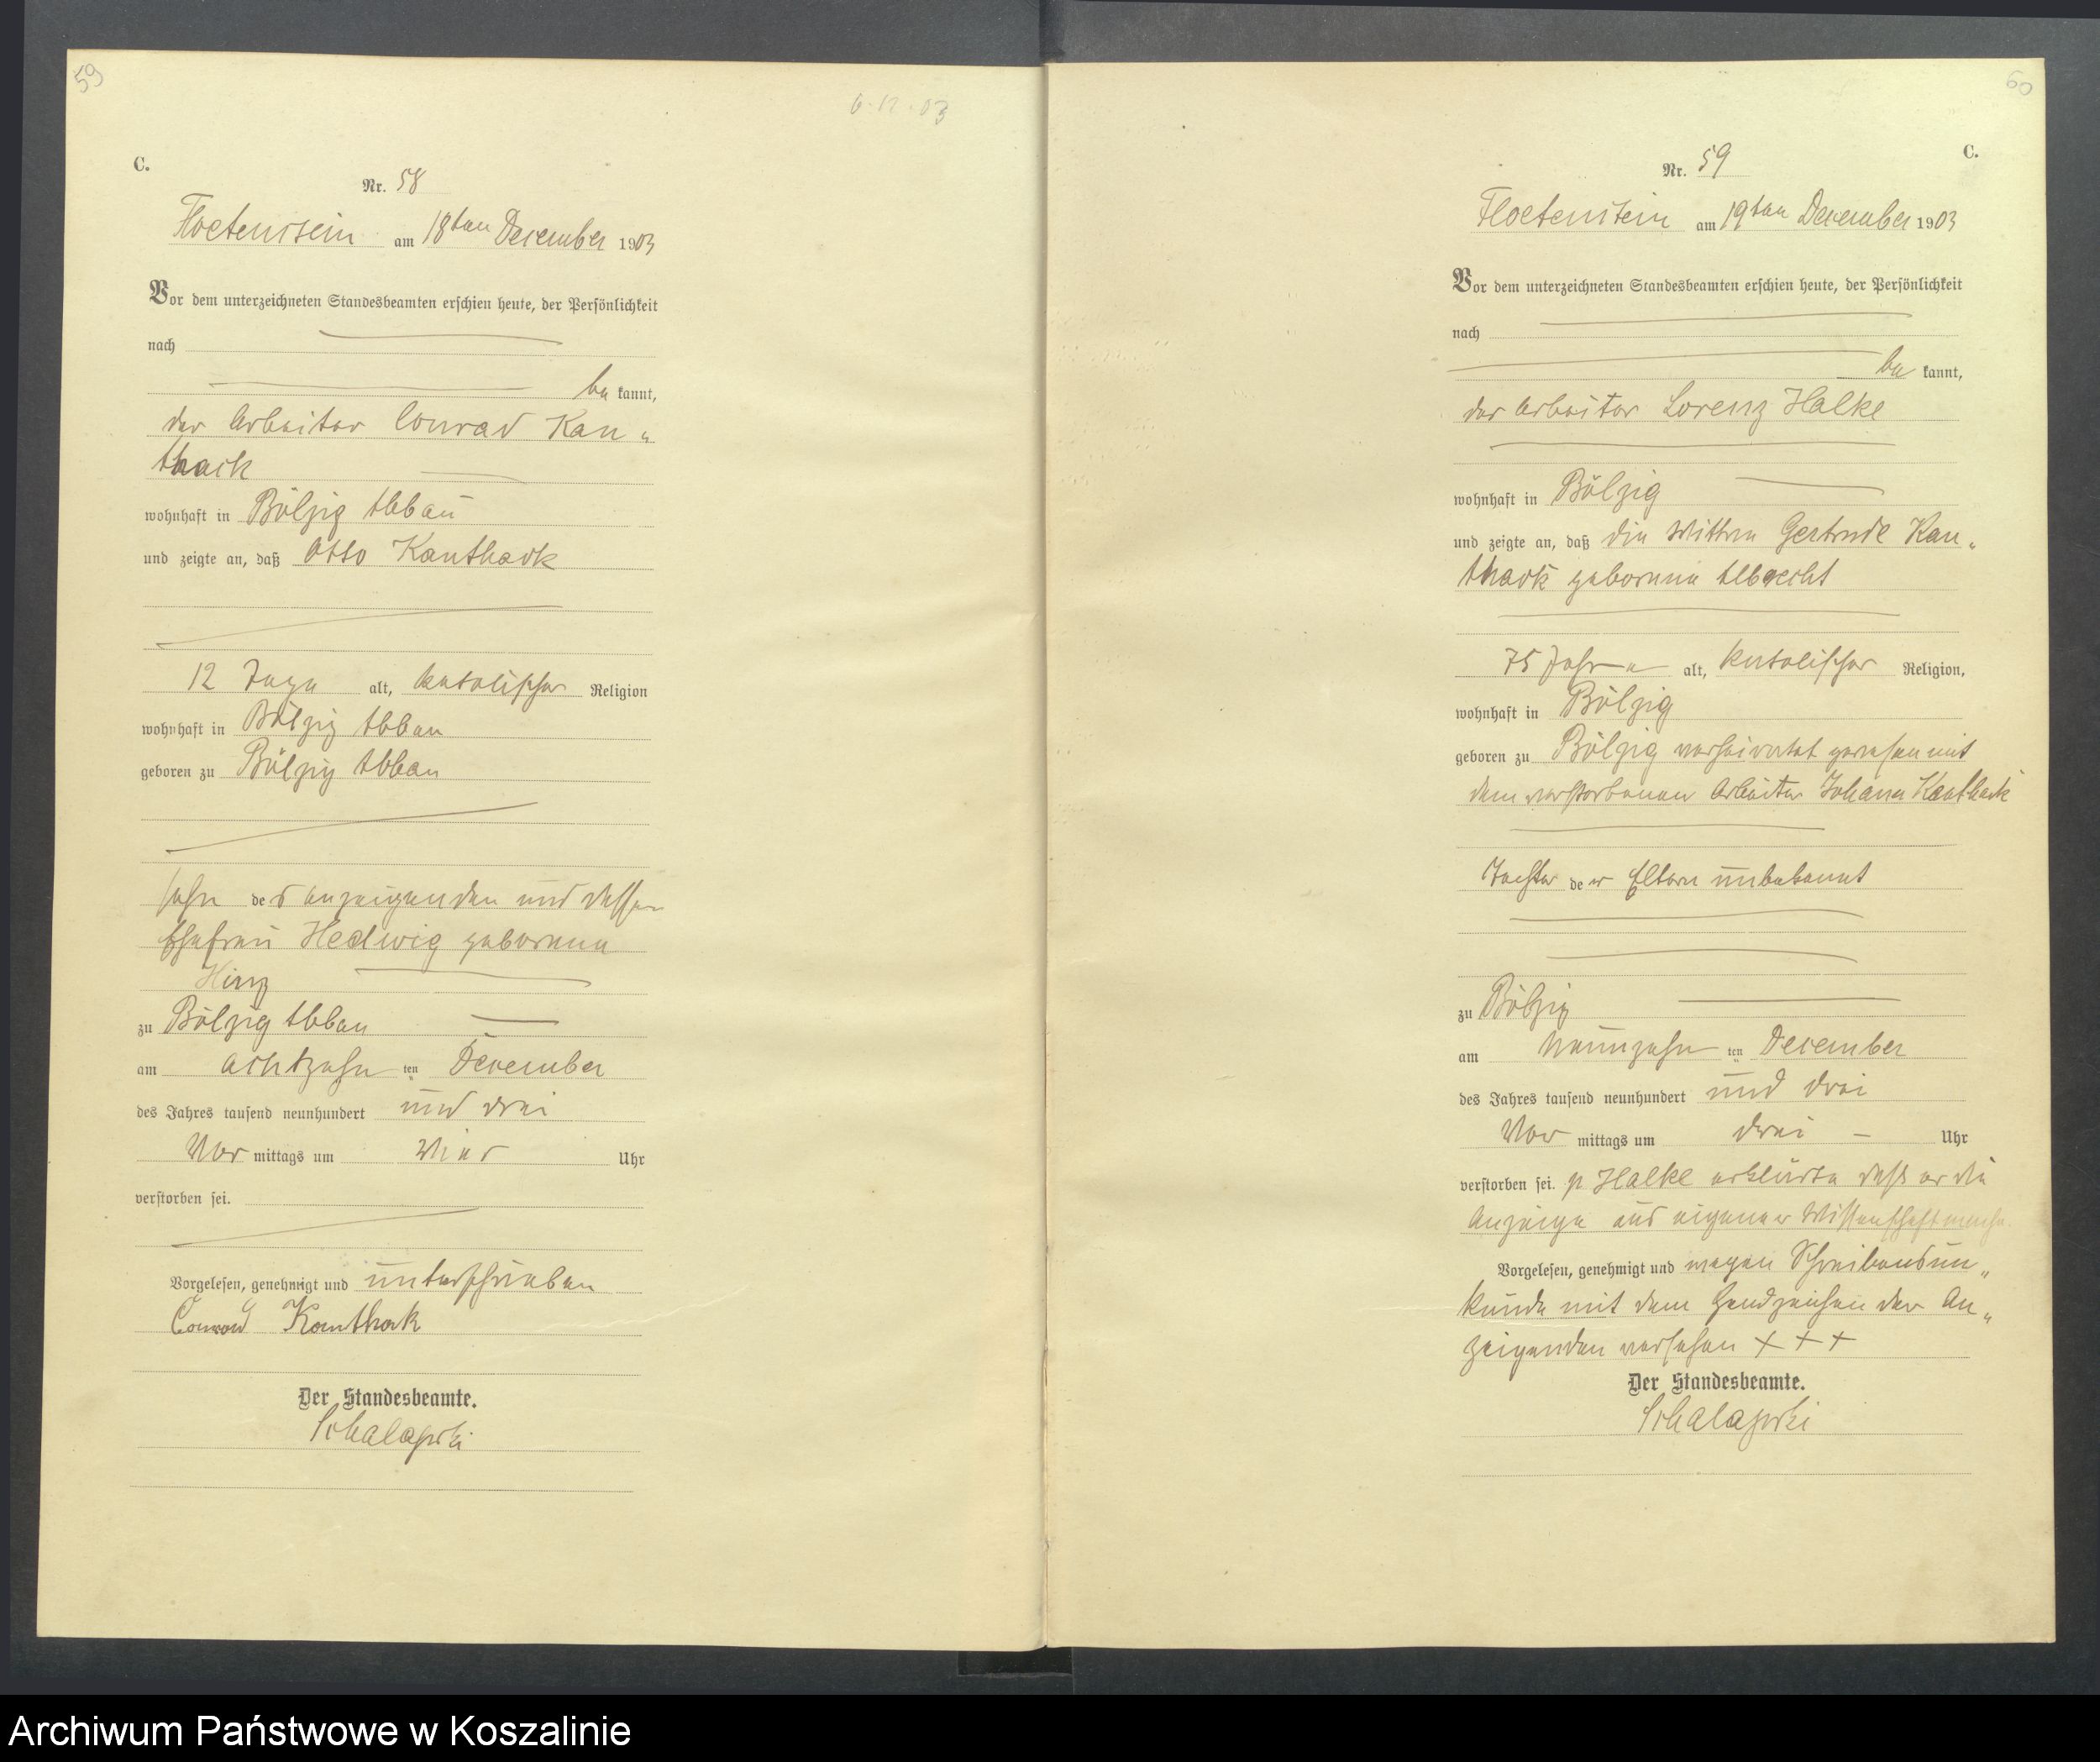 59
6.12.03
C.
Nr. 58
Floetenstein am 18ten December 1903
Vor dem unterzeichneten Standesbeamten erschien heute, der Persönlichkeit
nach
be kannt,
der Arbeiter Conrad Kan„
thack
wohnhaft in Bölzig Abbau
und zeigte an, daß Otto Kanthack
12 Tage alt, katolischer Religion
wohnhaft in Bölzig Abbau
geboren zu Bölzig Abbau
Sohn des Anzeigenden und dessen
Ehefrau Hedwig geborene
Hinz
zu Bölzig Abbau
am achtzehn ten December
des Jahres tausend neunhundert und drei
Vor mittags um vier Uhr
verstorben sei.
Vorgelesen, genehmigt und unterschrieben
Conrad Kanthak
Der Standesbeamte.
Schalapski
60
C.
Nr. 59
Floetenstein am 19ten December 1903
Vor dem unterzeichneten Standesbeamten erschien heute, der Persönlichkeit
nach
be kannt,
der Arbeiter Lorenz Halke
wohnhaft in Bölzig
und zeigte an, daß die Wittwe Gertrude Kan„
thack geborene Albrecht
75 Jahre alt, katolischer Religion,
wohnhaft in Bölzig
geboren zu Bölzig verheirathet gewesen mit
dem verstorbenen Arbeiter Johann Kanthack
Tochter der Eltern unbekannt
zu Bölzig
am neunzehn ten December
des Jahres tausend neunhundert und drei
Vor mittags um drei Uhr
verstorben sei. p Halke erklärte daß er die
Anzeige aus eigener Wissenschaft mache.
Vorgelesen, genehmigt und wegen Schreibensun„
kunde mit dem Handzeichen des An„
zeigenden versehen + + +
Der Standesbeamte.
Schalapski
Archiwum Państwowe w Koszalinie